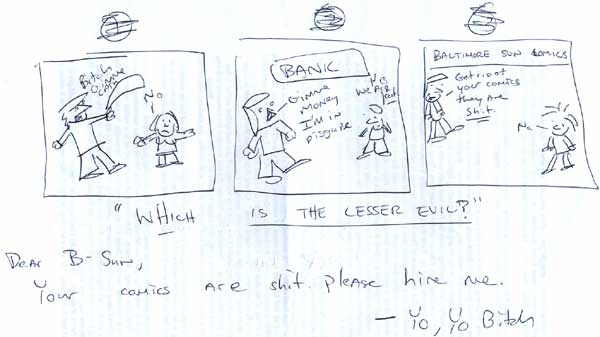 Bitch
Gimme
coin
No
BANK
Gimme
money
I'm in
disguise
No
we're
BALTIMORE SUN COMICS
Get rid of
your comics
they are
shit.
No.
"WHICH IS THE LESSER EVIL?"
Dear B-Sun,
Your comics are shit. please hire me.
— Yo, Yo Bitch